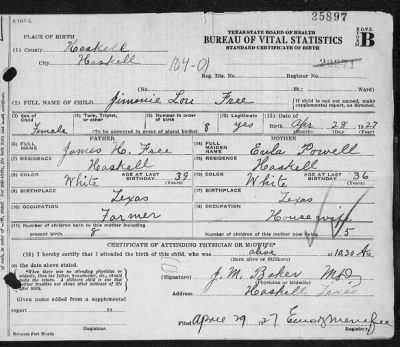 25897
TEXAS STATE BOARD OF HEALTH
BUREAU OF VITAL STATISTICS
STANDARD CERTIFICATE OF BIRTH
B
PLACE OF BIRTH
(1) County Haskell
City Haskell 104-01
Reg. Dis. No. Register No.
No. St.: Ward)
(2) FULL NAME OF CHILD Jimmie Lore Free
If child is not named, make supplemental report, as directed
(3) Sex Female
(4) Twin, Triplet, or other?
(5) Number in order of birth 8
(To be answered in event of plural births)
(6) Legitimate? yes
(7) Date of Birth Apr 28 1927
(Month) (Day) (Year)
FATHER
FULL NAME James H. Free
RESIDENCE Haskell
COLOR White AGE AT LAST BIRTHDAY 39 (Years)
BIRTHPLACE Texas
OCCUPATION Farmer
Number of children born to this mother including present birth 8
MOTHER
FULL MAIDEN NAME Eula Powell
RESIDENCE Haskell
COLOR White AGE AT LAST BIRTHDAY 36 (Years)
BIRTHPLACE Texas
OCCUPATION House wife
5
CERTIFICATE OF ATTENDING PHYSICIAN OR MIDWIFE
I hereby certify that I attended the birth of this child, who was alive at 10:30 A M.
(Born alive or Stillborn)
on the date above stated.
When there was no attending physician or midwife, then the father, householder, etc., should make this return. A stillborn child is one that neither breathes nor shows other evidence of life after birth.
(Signed) J. M. Baker M.D.
(Physician or Midwife)
Address Haskell Texas
Given name added from a supplemental report 19
Registrar.
Filed April 29 1927
Registrar.
Reliance Fort Worth